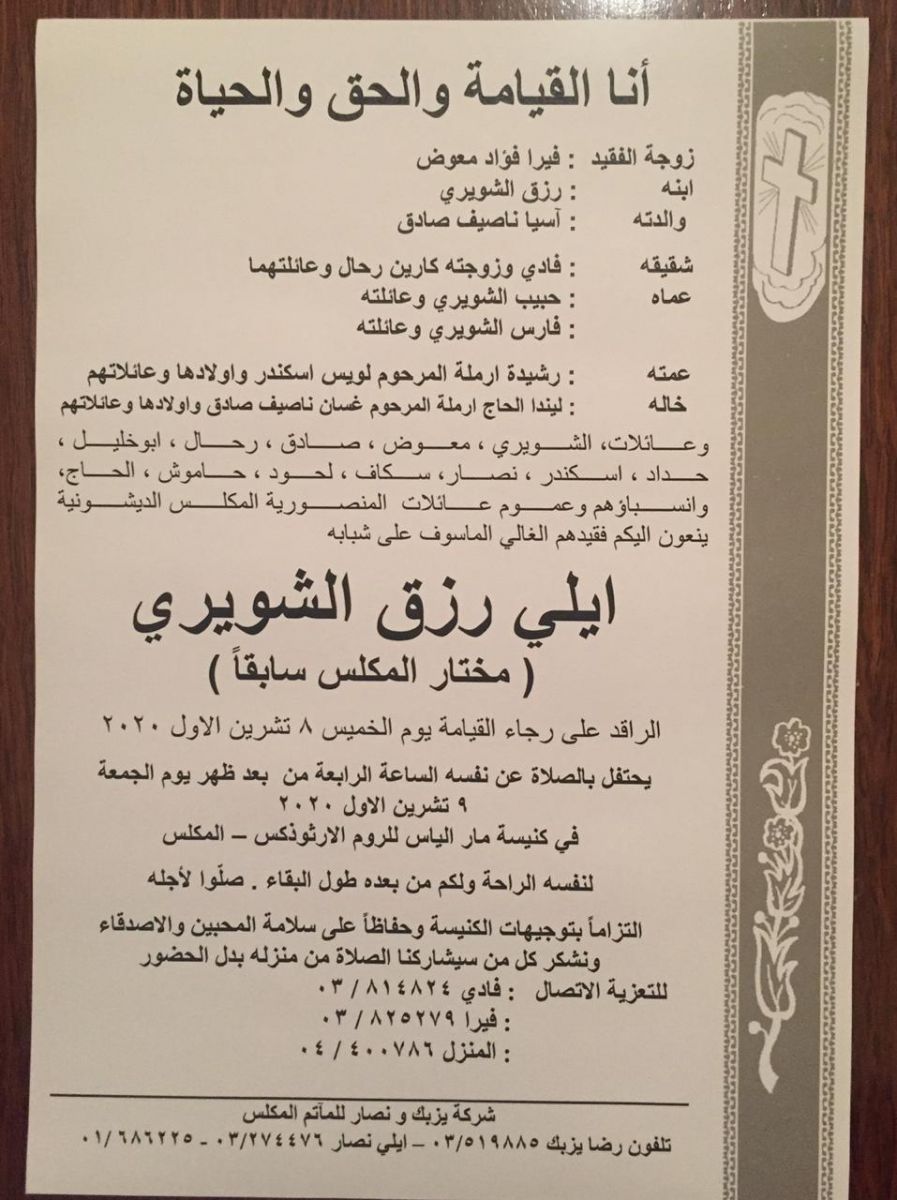 أنا القيامة والحق والحياة
زوجة الفقيد : فيرا فؤاد معوض
ابنه : رزق الشويري
والدته : آسيا ناصيف صادق
شقيقه : فادي وزوجته كارين رحال وعائلتهما
عماه : حبيب الشويري وعائلته
: فارس الشويري وعائلته
عمته : رشيدة ارملة المرحوم لويس اسكندر واولادها وعائلاتهم
خاله : ليندا الحاج ارملة المرحوم غسان ناصيف صادق واولادها وعائلاتهم
وعائلات، الشويري ، معوض ، صادق ، رحال ، ابوخليل ،
حداد ، اسكندر ، نصار، سكاف ، لحود ، حاموش ، الحاج،
وانسباؤهم وعموم عائلات المنصورية المكلس الديشونية
ينعون اليكم فقيدهم الغالي الماسوف على شبابه
ايلي رزق الشويري
( مختار المكلس سابقاً )
الراقد على رجاء القيامة يوم الخميس ٨ تشرين الاول ٢٠٢٠
يحتفل بالصلاة عن نفسه الساعة الرابعة من بعد ظهر يوم الجمعة
٩ تشرين الاول ٢٠٢٠
في كنيسة مار الياس للروم الارثوذكس – المكلس
لنفسه الراحة ولكم من بعده طول البقاء . صلّوا لأجله
التزاماً بتوجيهات الكنيسة وحفاظاً على سلامة المحبين والاصدقاء
ونشكر كل من سيشاركنا الصلاة من منزله بدل الحضور
للتعزية الاتصال : فادي ٨١٤٨٢٤ / ٠٣
: فيرا ٨٢٥٢٧٩ / ٠٣
: المنزل ٤٠٠٧٨٦ / ٠٤
شركة يزبك و نصار للمآتم المكلس
تلفون رضا يزبك ٠٣/٥١٩٨٨٥ – ايلي نصار ٠٣/٢٧٤٤٧٦ - ٠١/٦٨٦٢٢٥